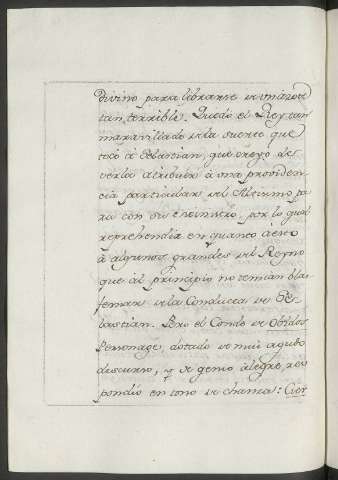 divino para librarse de un azote
tan terrible. Quedó el Rey tan
maravillado de la suerte que
tocó à Sebastian, que creyo de-
verla atribuir à una providen-
cia particular del Altissimo pa-
ra con su Ministro, por lo qual
reprehendia en quanto à esto
à algunos grandes del Reyno
que al principio no temian blas-
femar de la Conducta de Se-
bastian. Pero el Conde de Obidos
Personage, dotado de mui agudo
discurso, y de genio alegre, res-
pondió en tono de chanza: Cier-